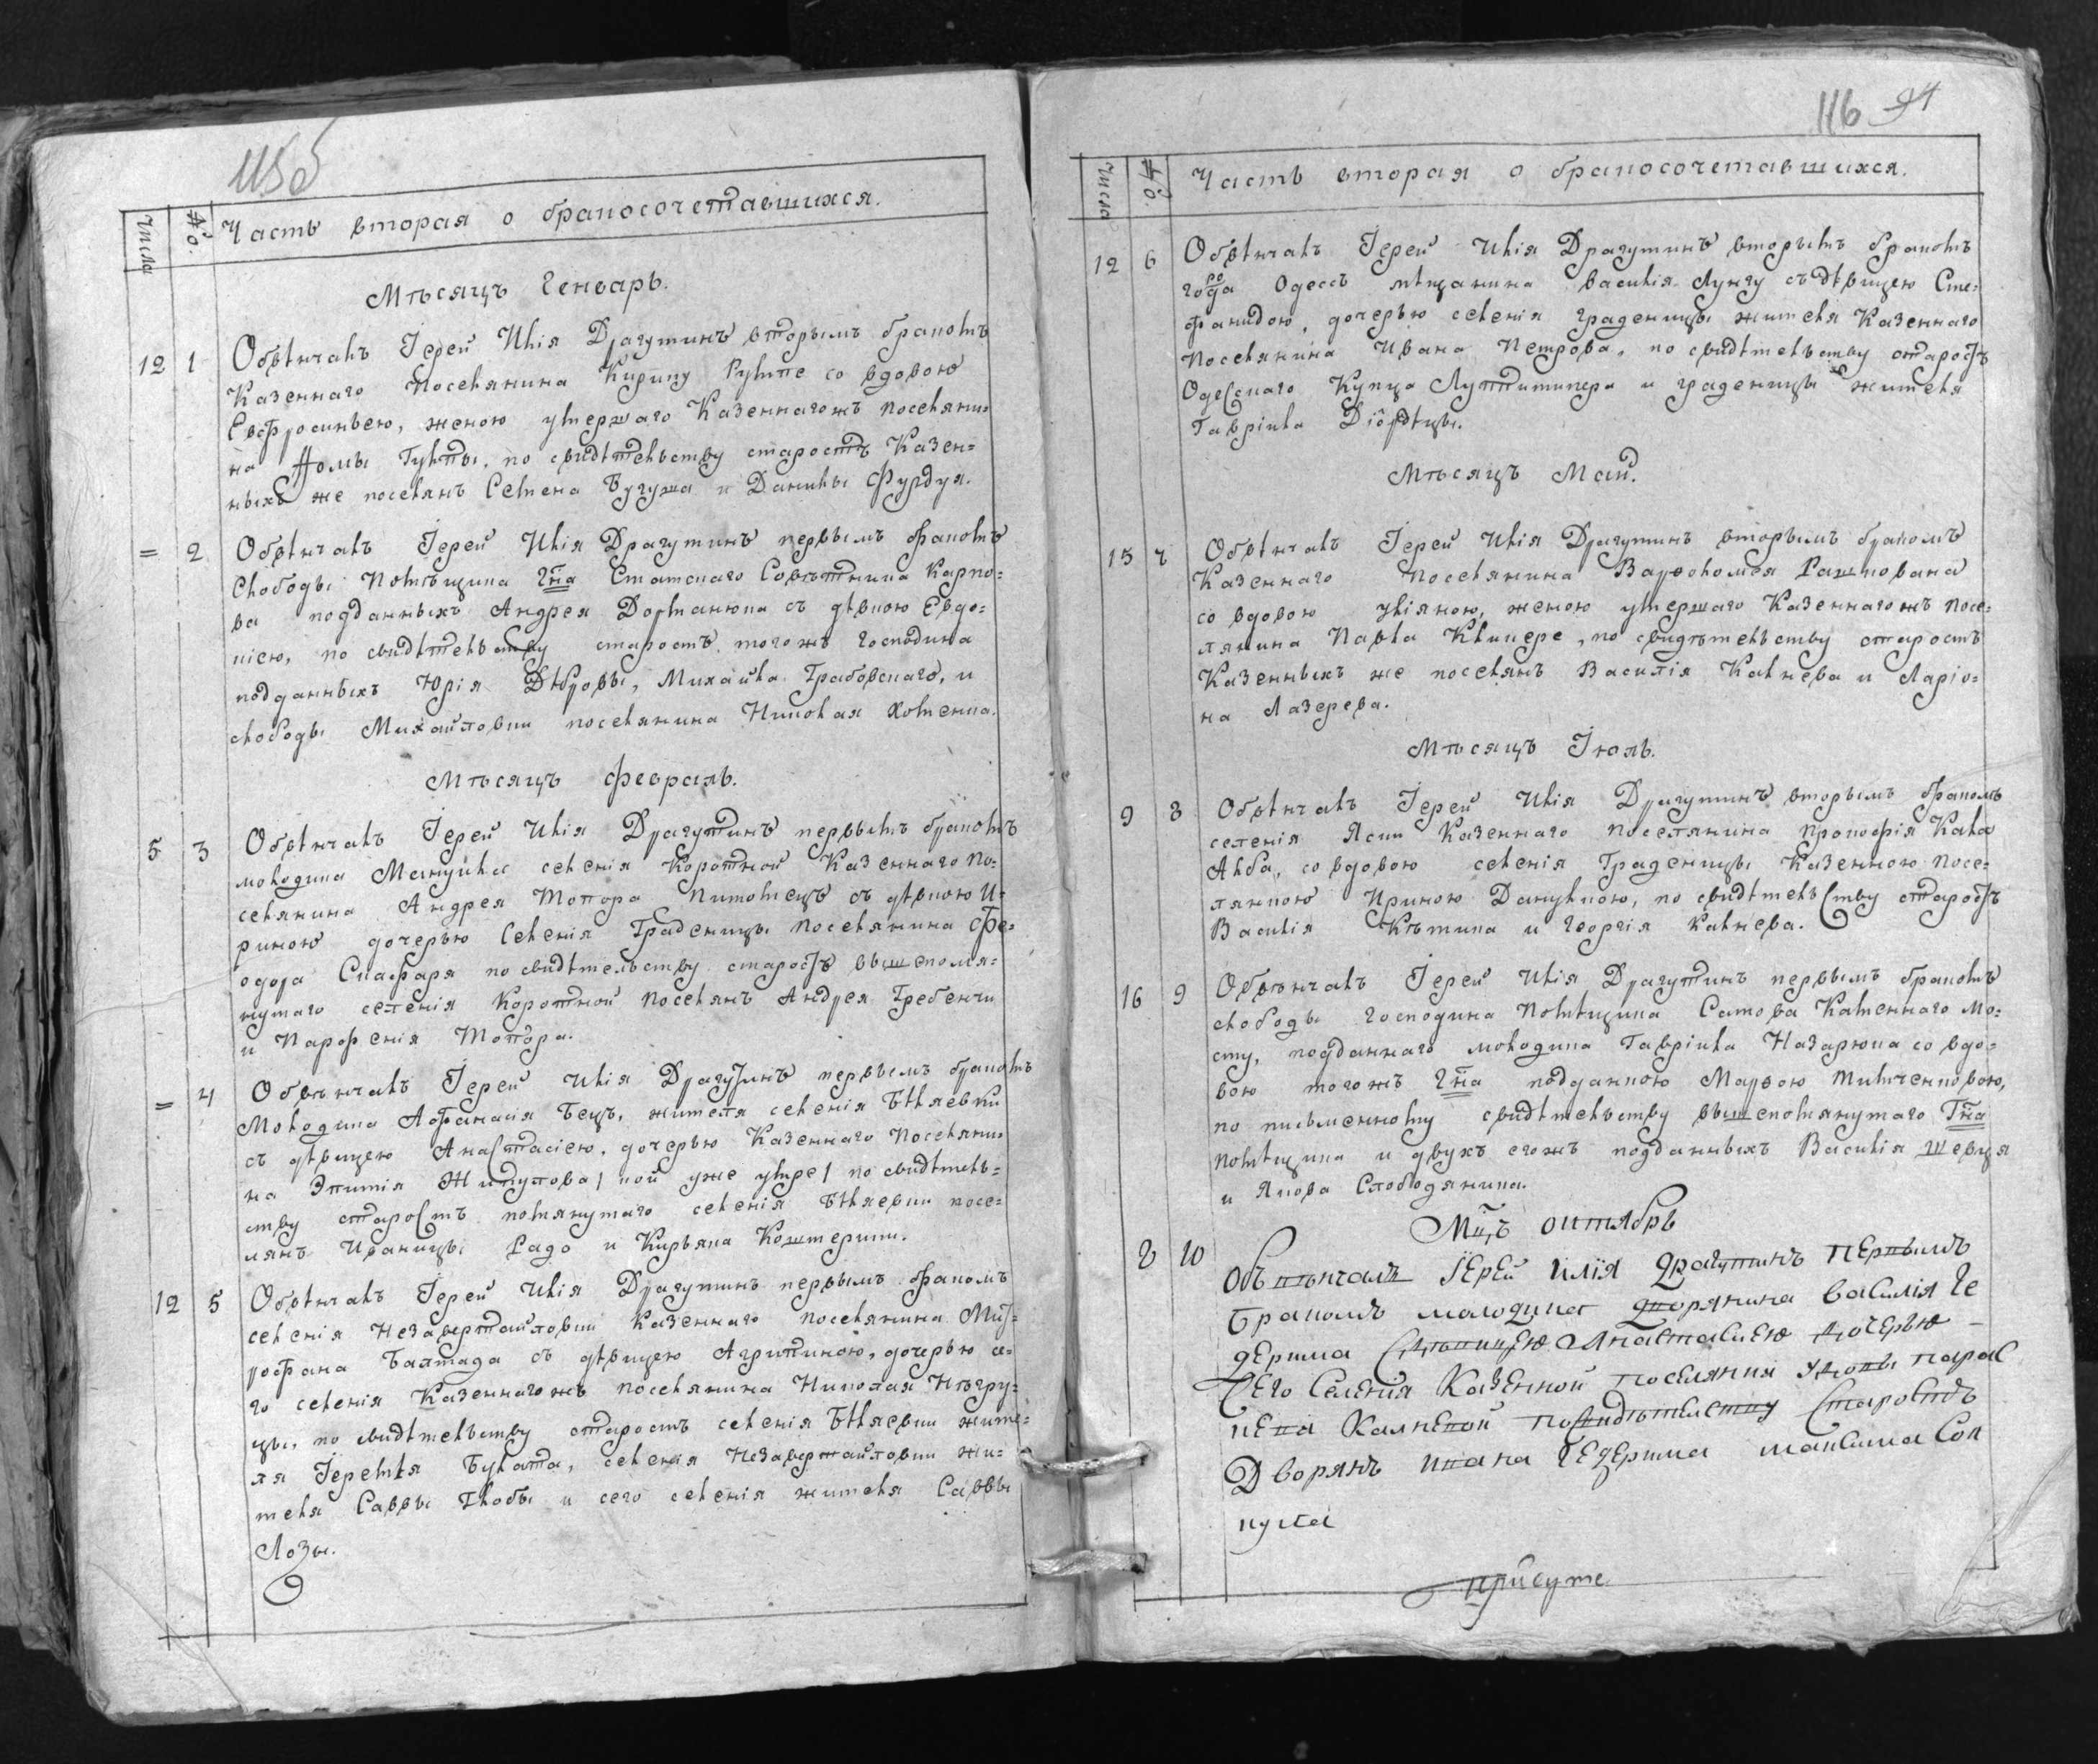 115об
Числа
№.
Часть вторая о бракосочетавшихся.
Мѣсяцъ Генварь.
12 1 Обвѣнчалъ Іерей Илія Драгутинъ вторымъ бракомъ
Казеннаго поселянина Кирику со вдовою
Евфросиньею, женою умершаго Казеннагожъ поселяни=
на Ѳомы по свидѣтельству старостъ Казен=
ныхъ же поселянъ Семена Бугуша и Данилы Фурдуя.
= 2 Обвѣнчалъ Іерей Илія Драгутинъ первымъ бракомъ
слободы помѣщика Гна Статскаго Совѣтника Карпо=
ва подданныхъ Андрея съ дѣвкою Евдо=
кіею, по свидѣтельству старостъ тогожъ Господина
подданныхъ Юрія Дѣбровы, Михайла Грабовскаго, и
слободы Михайловки поселянина Николая Хоменка.
Мѣсяцъ Февраль.
5 3 Обвѣнчалъ Іерей Илія Драгутинъ первымъ бракомъ
молодика Мануйла селенія Коротной Казеннаго по=
селянина Андрея Топора питомецъ съ дѣвкою И=
риною дочерью селенія Граденицы поселянина Фе=
одора Снафаря по свидѣтельству старостъ вышепомя=
нутаго селенія Коротной поселянъ Андрея Гребенчи
и Парфенія Топора.
= 4 Обвѣнчалъ Іерей Илія Драгутинъ первымъ бракомъ
Молодика Афанасія Бецъ, жителя селенія Бѣляевки
съ дѣвицею Анастасіею, дочерью Казеннаго Поселяни=
на Жипулова / кой уже умре / по свидѣтель=
ству старостъ помянутаго селенія Бѣляевки посе=
лянъ Иваницы Радо и Кирьяка
12 5 Обвѣнчалъ Іерей Илія Драгутинъ первымъ бракомъ
селенія Незавертайловки Казеннаго поселянина Мит=
рофана Балтага съ дѣвицею Агрипиною, дочерью се=
го селенія Казеннагожъ поселянина Николая Нѣгру=
цы, по свидѣтельству старостъ селенія Бѣляевки жите=
ля Іеремѣя Буката, селенія Незавертайловки жи=
теля Саввы Глобы и сего селенія жителя Саввы
Лозы.
116 91
Числа
№.
Часть вторая о бракосочетавшихся.
12 6 Обвѣнчалъ Іерей Илія Драгутинъ вторымъ бракомъ
города Одессъ мѣщанина Василія Лунгу съ дѣвицею Сте=
фанидою, дочерью селенія Граденицы жителя Казеннаго
Поселянина Ивана Петрова, по свидѣтельству старостъ
Одесскаго Купца и граденицы жителя
Гавріила
Мѣсяцъ Май.
15 7 Обвѣнчалъ Іерей Илія Драгутинъ вторымъ бракомъ
Казеннаго Поселянина Варѳоломея Рашкована
со вдовою Уліяною, женою умершаго Казеннагожъ посе=
лянина Павла по свидѣтельству старостъ
Казенныхъ же поселянъ Василія Калнева и Ларіо=
на Лазерева.
Мѣсяцъ Іюль.
9 8 Обвѣнчалъ Іерей Илія Драгутинъ вторымъ бракомъ
селенія Яски Казеннаго поселянина Прокофія Кала
Алба, со вдовою селенія Граденицы Казенною посе=
лянкою Ириною по свидѣтельству старостъ
Василія и Георгія Калнева.
16 9 Обвѣнчалъ Іерей Илія Драгутинъ первымъ бракомъ
слободы Господина Помѣщика Сатова Каменнаго Мо=
сту, подданнаго молодика Гавріила Назарюка со вдо=
вою тогожъ Гна подданною Марѳою
по письменному свидѣтельству вышепомянутаго Гна
помѣщика и двухъ егожъ подданныхъ Василія Шевця
и Якова Слободяника.
Мцъ октябрь
8 10 Обвѣнчалъ Іерей Илія Драгутинъ первымъ
бракомъ молодика дворянина Василія Че
дерима сдѣвицею Анастасиею дочерью
Сего Селенія Казенной поселянки Удовы Парас
кева Калневой посвидѣтелству старостъ
Дворянъ Ивана Чедерима Максима Сок